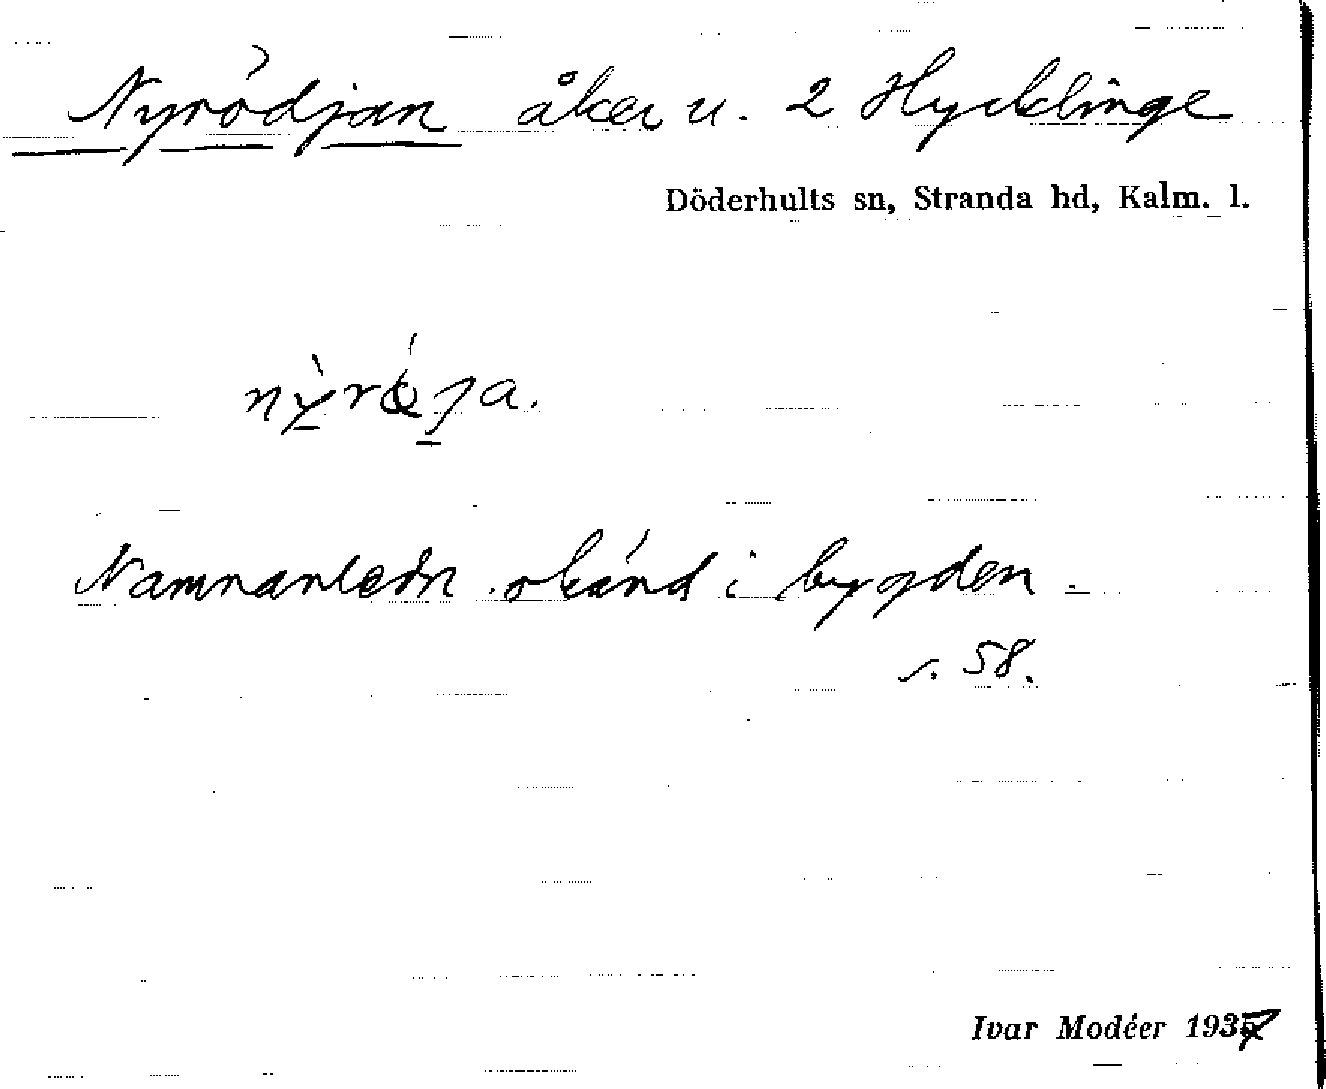 Nyrödjan åker u. 2 Hycklinge
Döderhults sn, Stranda hd, Kalm. l.
Namnanledn. okänd i bygden.
s. 58.
Ivar Modéer 1937